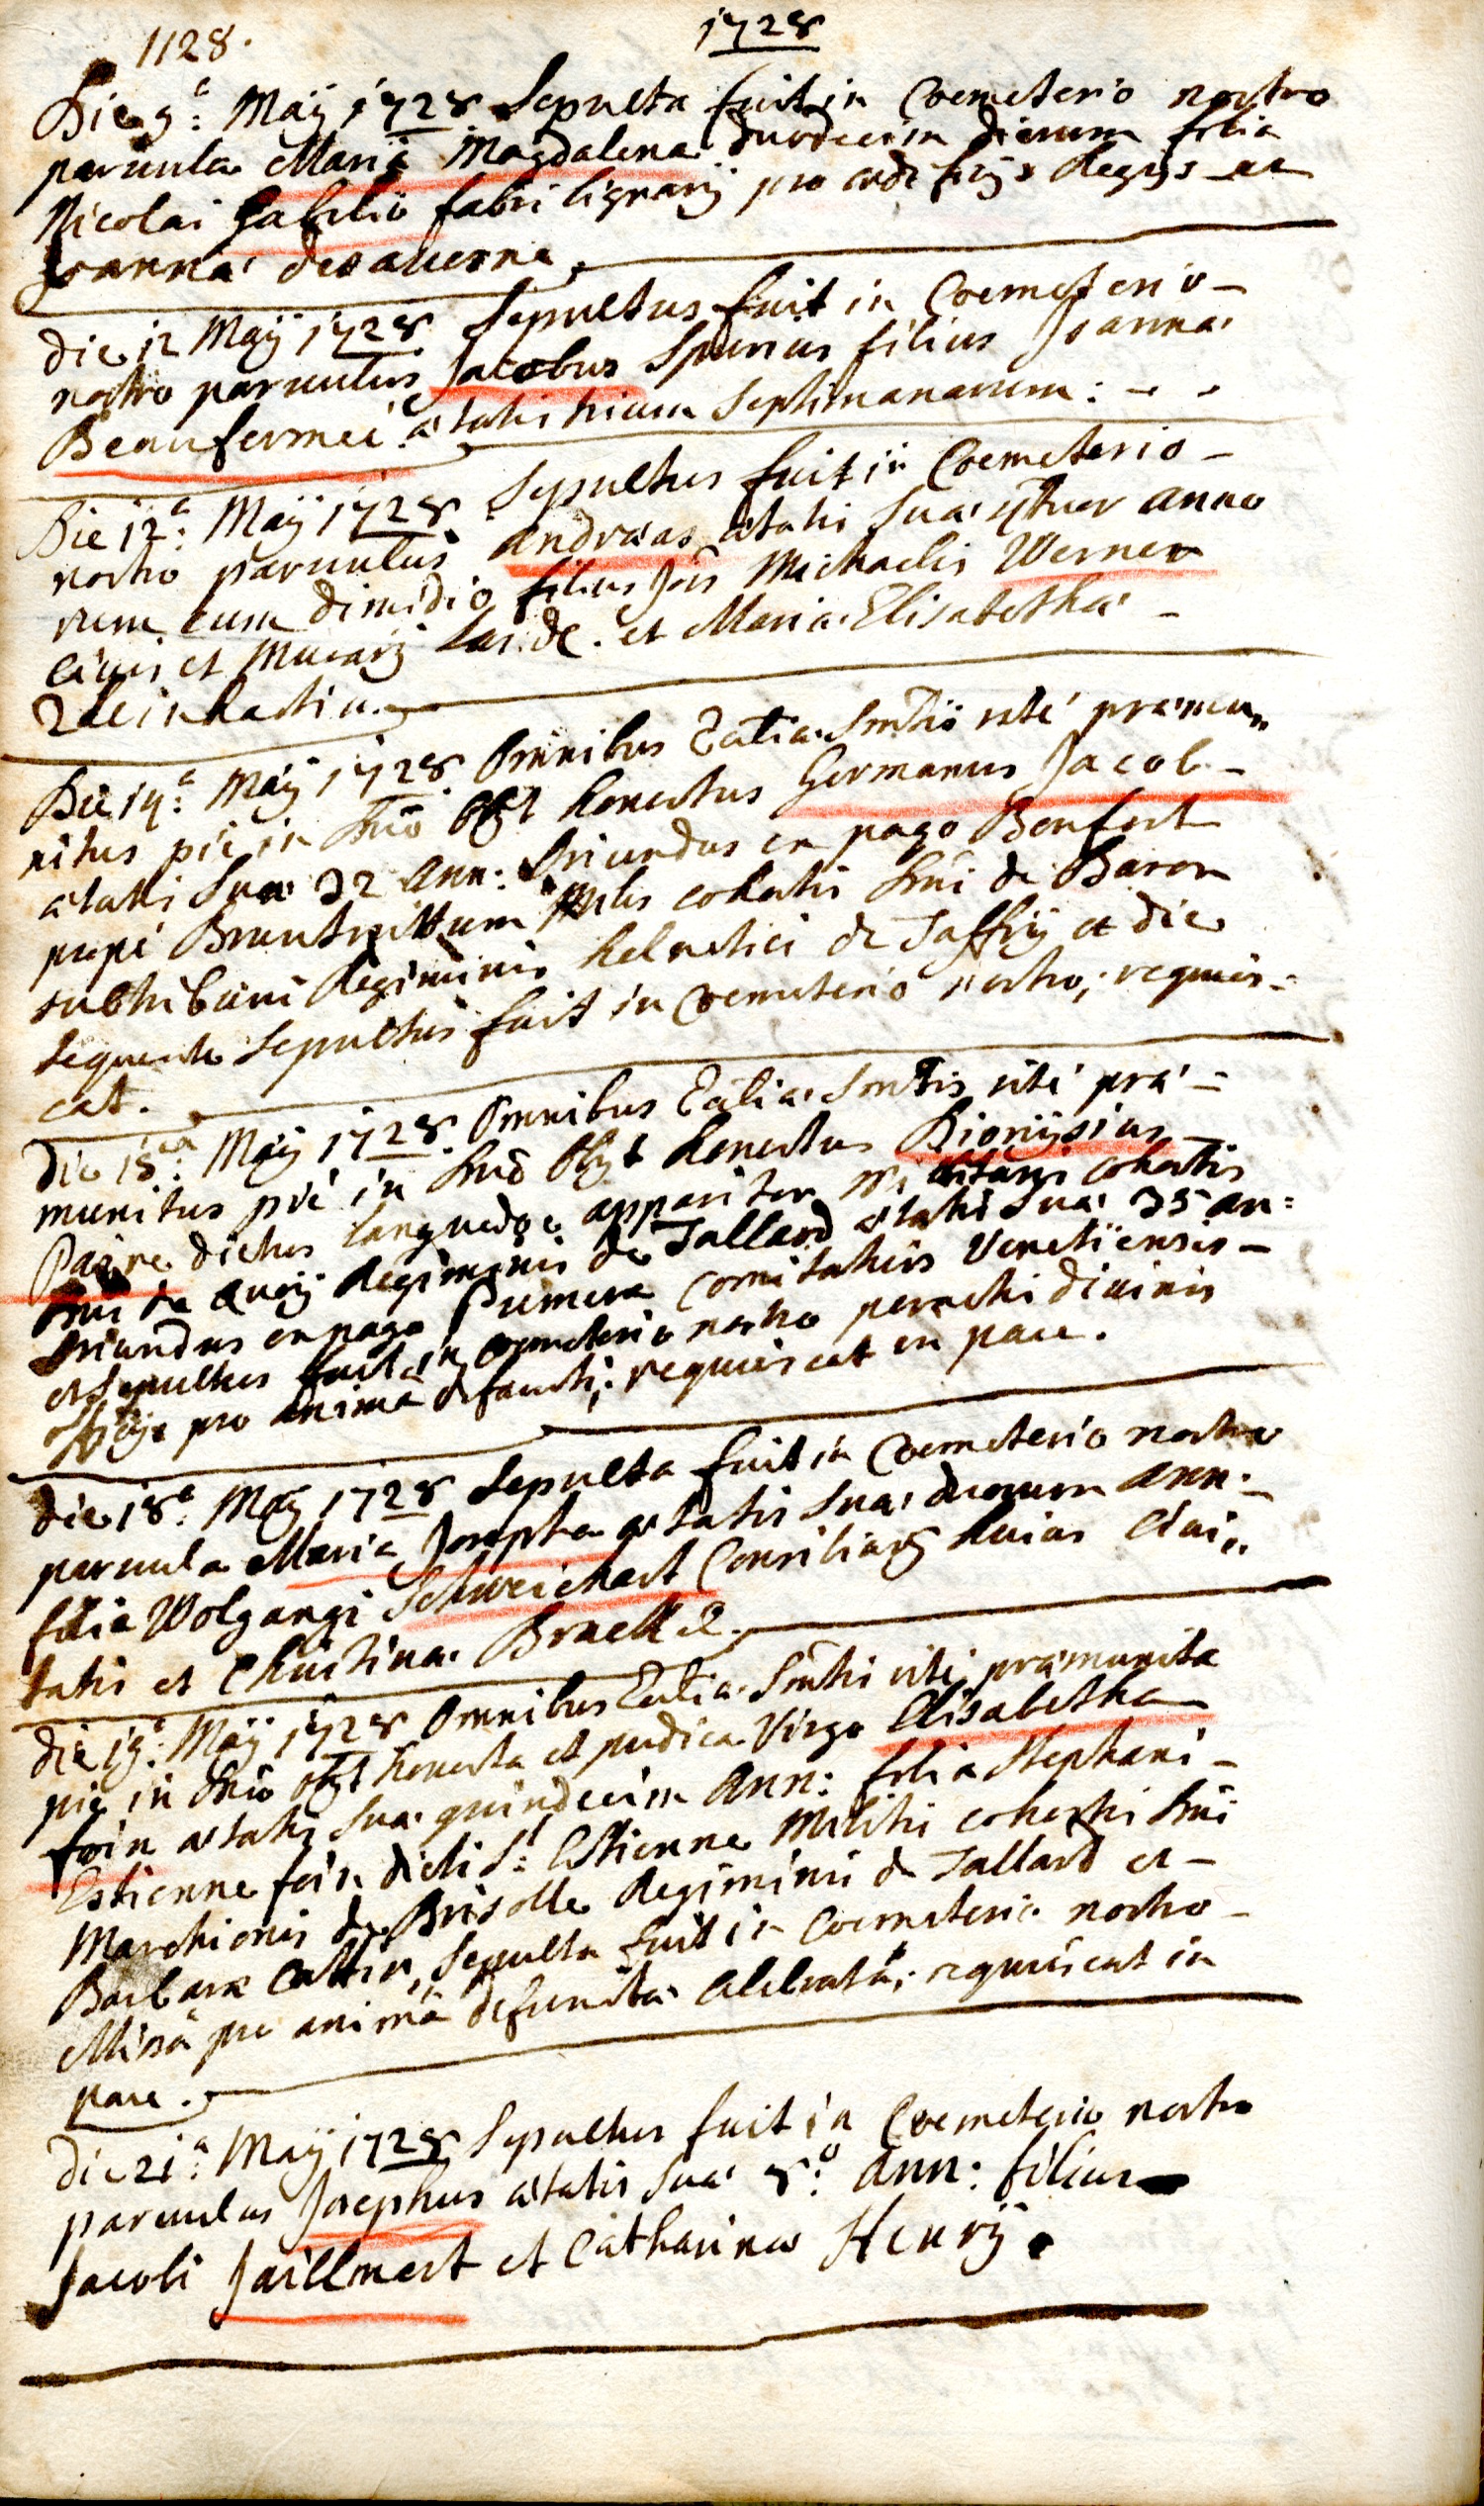 1128.
1728
Die 9ª: Maÿ 1728 Sepulta fuit in Coemeterio nostro
parvula Maria Magdalena duodecim dierum filia
Nicolai Gabilio fabri lignarÿ pro ædificÿs Regÿs et
Joannæ desaverne.
die 12 Maÿ 1728 Sepultus fuit in Coemeterio -
nostro parvulus Jacobus Spurius filius Joannæ
Beaufermei ætatis trium Septimanarum: - -
Die 12ª: Maÿ 1728 Sepultus fuit in Coemeterio -
nostro parvulus Andræas ætatis suæ quatuor anno
rum cum dimidio filius Jois Michaelis Werner
civis et murarÿ et Maria Elisabetha -
Die 14ª: Maÿ 1728 Omnibus Ecctiæ Smtis rité præmu„
nitus pié in Dno obÿt honestus Germanus Jacob -
ætatis suæ 32 ann: Oriundus ex pago Bonfort
propé Bruntruttum Miles cohortis Dni de Baron
subtribuni Regiminis helvetici de Jaffrÿ et die
sequente Sepultus fuit in Coemeterio nostro; requies-
cat.
die 15ª: Maÿ 1728 Omnibus Ecctiæ Smtis rité præ -
munitus pié in Dno Obÿt honestus Dionÿsius
Paire dictus Languedoc apparitor Militaris cohortis
Dni de Quoÿ Regiminis de Tallard ætatis suæ 35 an:
Oriundus ex pago Pumera Comitatus Venetiensis -
et Sepultus fuit in Coemeterio nostro peractis divinis
offÿs pro anima defuncti; requiescat in pace.
die 18ª: Maÿ 1728 Sepulta fuit in Coemeterio nostro
parvula Maria Josepha ætatis suæ duorum ann: -
filia Wolgangi Schweichart Consiliarÿ huius Civi„
tatis et Christinæ Bruckel.
die 19ª: Maÿ 1728 Omnibus Ecctiæ Smtis rité præmunita
pié in Dno obÿt honesta et pudica Virgo Elisabetha
foin ætatis suæ quindecim Ann: filia Stephani -
Estienne foin dicti St: Estienne Militis cohortis Dni
Marchionis de Brisolle Regiminis de Tallard et -
Barbaræ Cattin, Sepulta fuit in Coemeterio nostro -
Missa pro anima defunctæ celebrata; requiescat in
pace.
die 21ª: Maÿ 1728 Sepultus fuit in Coemeterio nostro
parvulus Josephus ætatis suæ 8º: Ann: filius
Jacobi Jaillmert et Catharinæ Henrÿ.